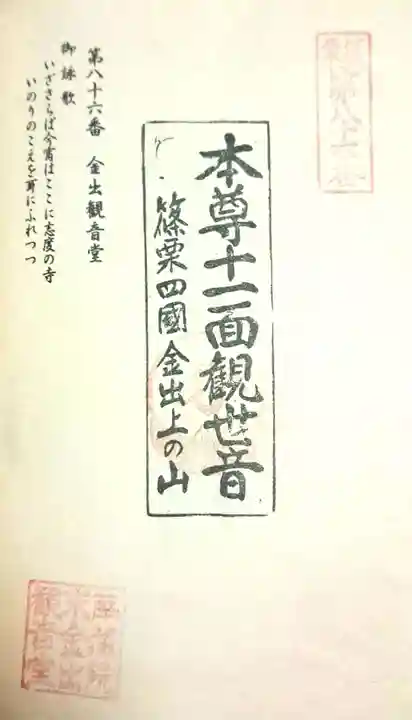 本尊十一面観世音
篠栗四國金出上の山
第八十六番 金出観音堂
御詠歌
いざさらば今宵はここに志度の寺
いのりのこえを耳にふれつつ